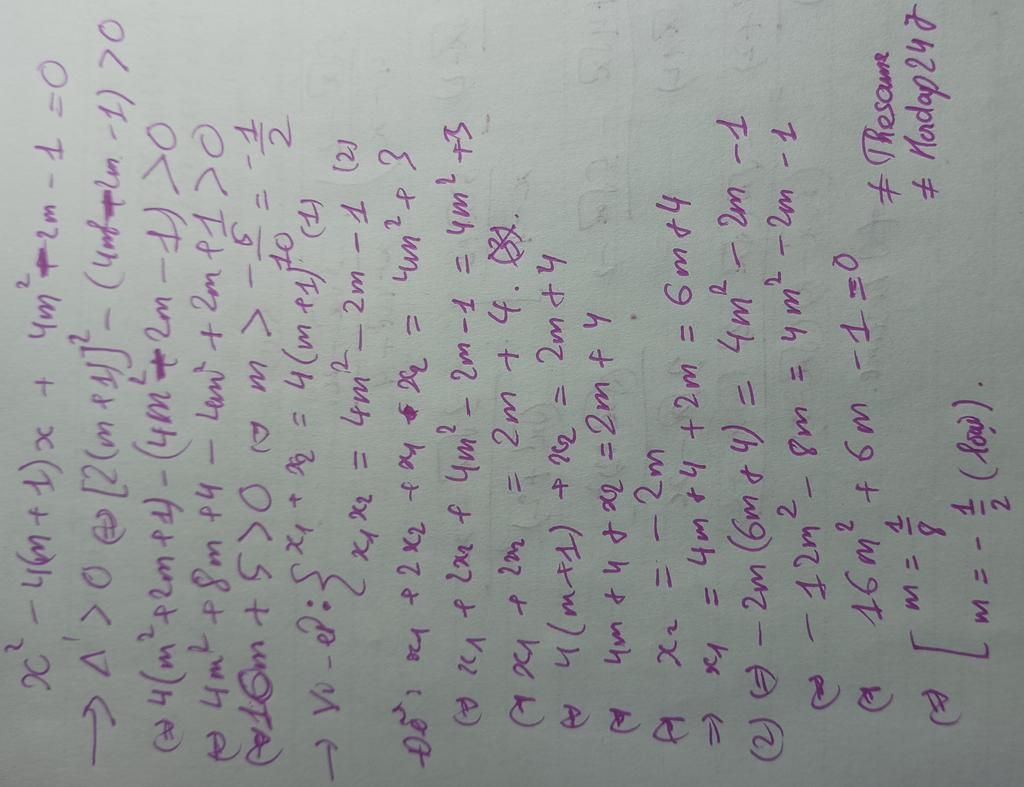 x² - 4(m+1)x + 4m² - 2m - 1 = 0
→ Δ' > 0 ⇔ [2(m+1)]² - (4m² - 2m - 1) > 0
⇔ 4(m² + 2m + 1) - (4m² - 2m - 1) > 0
⇔ 4m² + 8m + 4 - 4m² + 2m + 1 > 0
⇔ 10m + 5 > 0 ⇔ m > -5/10 = -1/2
→ Vi-ét: { x₁ + x₂ = 4(m+1) (1)
x₁x₂ = 4m² - 2m - 1 (2)
Đề: x₁ + 2x₂ + x₁x₂ = 4m² + 3
⇔ x₁ + 2x₂ + 4m² - 2m - 1 = 4m² + 3
⇔ x₁ + 2x₂ = 2m + 4.
⇔ 4(m+1) + x₂ = 2m + 4
⇔ 4m + 4 + x₂ = 2m + 4
⇔ x₂ = -2m
⇒ x₁ = 4m + 4 + 2m = 6m + 4
(2) ⇒ -2m(6m + 4) = 4m² - 2m - 1
⇔ -12m² - 8m = 4m² - 2m - 1
⇔ 16m² + 6m - 1 = 0
⇔ [ m = 1/8
m = -1/2 (loại).
≠ Thesame
≠ Hoidap247